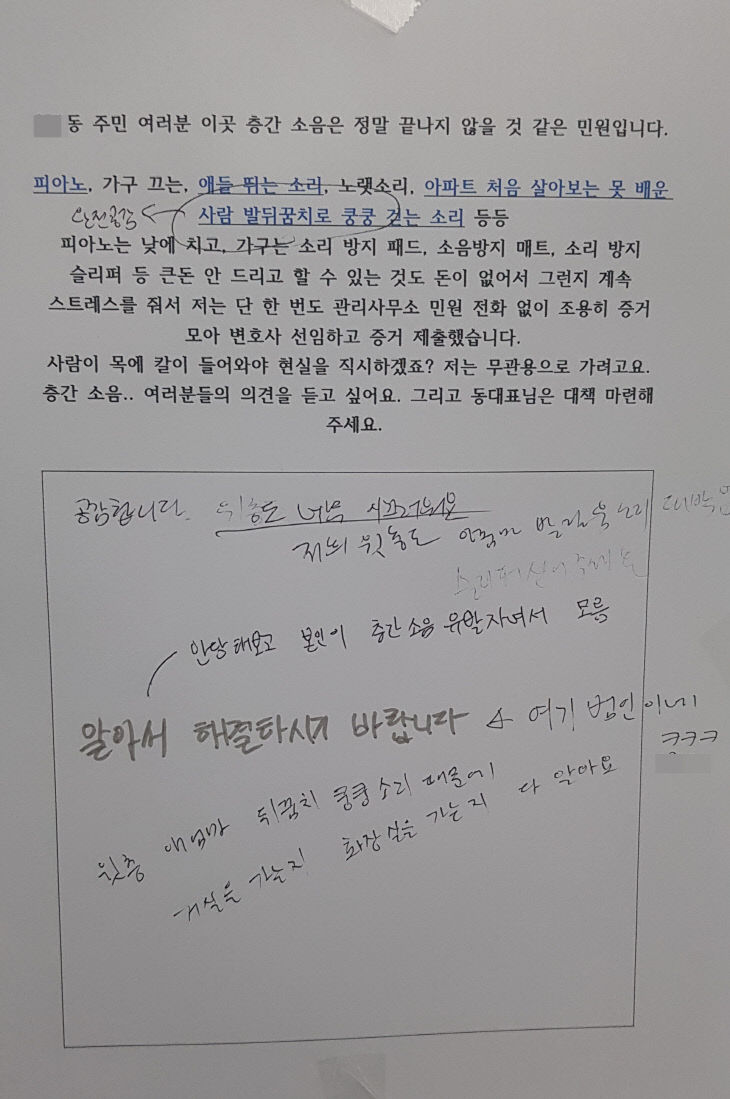 동 주민 여러분 이곳 층간 소음은 정말 끝나지 않을 것 같은 민원입니다.
피아노, 가구 끄는, 애들 뛰는 소리, 노랫소리, 아파트 처음 살아보는 못 배운
완전공감
사람 발뒤꿈치로 쿵쿵 걷는 소리 등등
피아노는 낮에 치고, 가구는 소리 방지 패드, 소음방지 매트, 소리 방지
슬리퍼 등 큰돈 안 드리고 할 수 있는 것도 돈이 없어서 그런지 계속
스트레스를 줘서 저는 단 한 번도 관리사무소 민원 전화 없이 조용히 증거
모아 변호사 선임하고 증거 제출했습니다.
사람이 목에 칼이 들어와야 현실을 직시하겠죠? 저는 무관용으로 가려고요.
층간 소음.. 여러분들의 의견을 듣고 싶어요. 그리고 동대표님은 대책 마련해
주세요.
공감합니다. 위층도 너무 시끄러워요
저희 윗층도 발걸음 소리 대박
슬리퍼 신어 주세요
안당해보고 본인이 층간소음 유발자여서 모름
알아서 해결하시기 바랍니다 여기 범인이네
ㅋㅋㅋ
윗층 애엄마 뒤꿈치 쿵쿵소리 때문에
거실을 가는지 화장실을 가는지 다 알아요